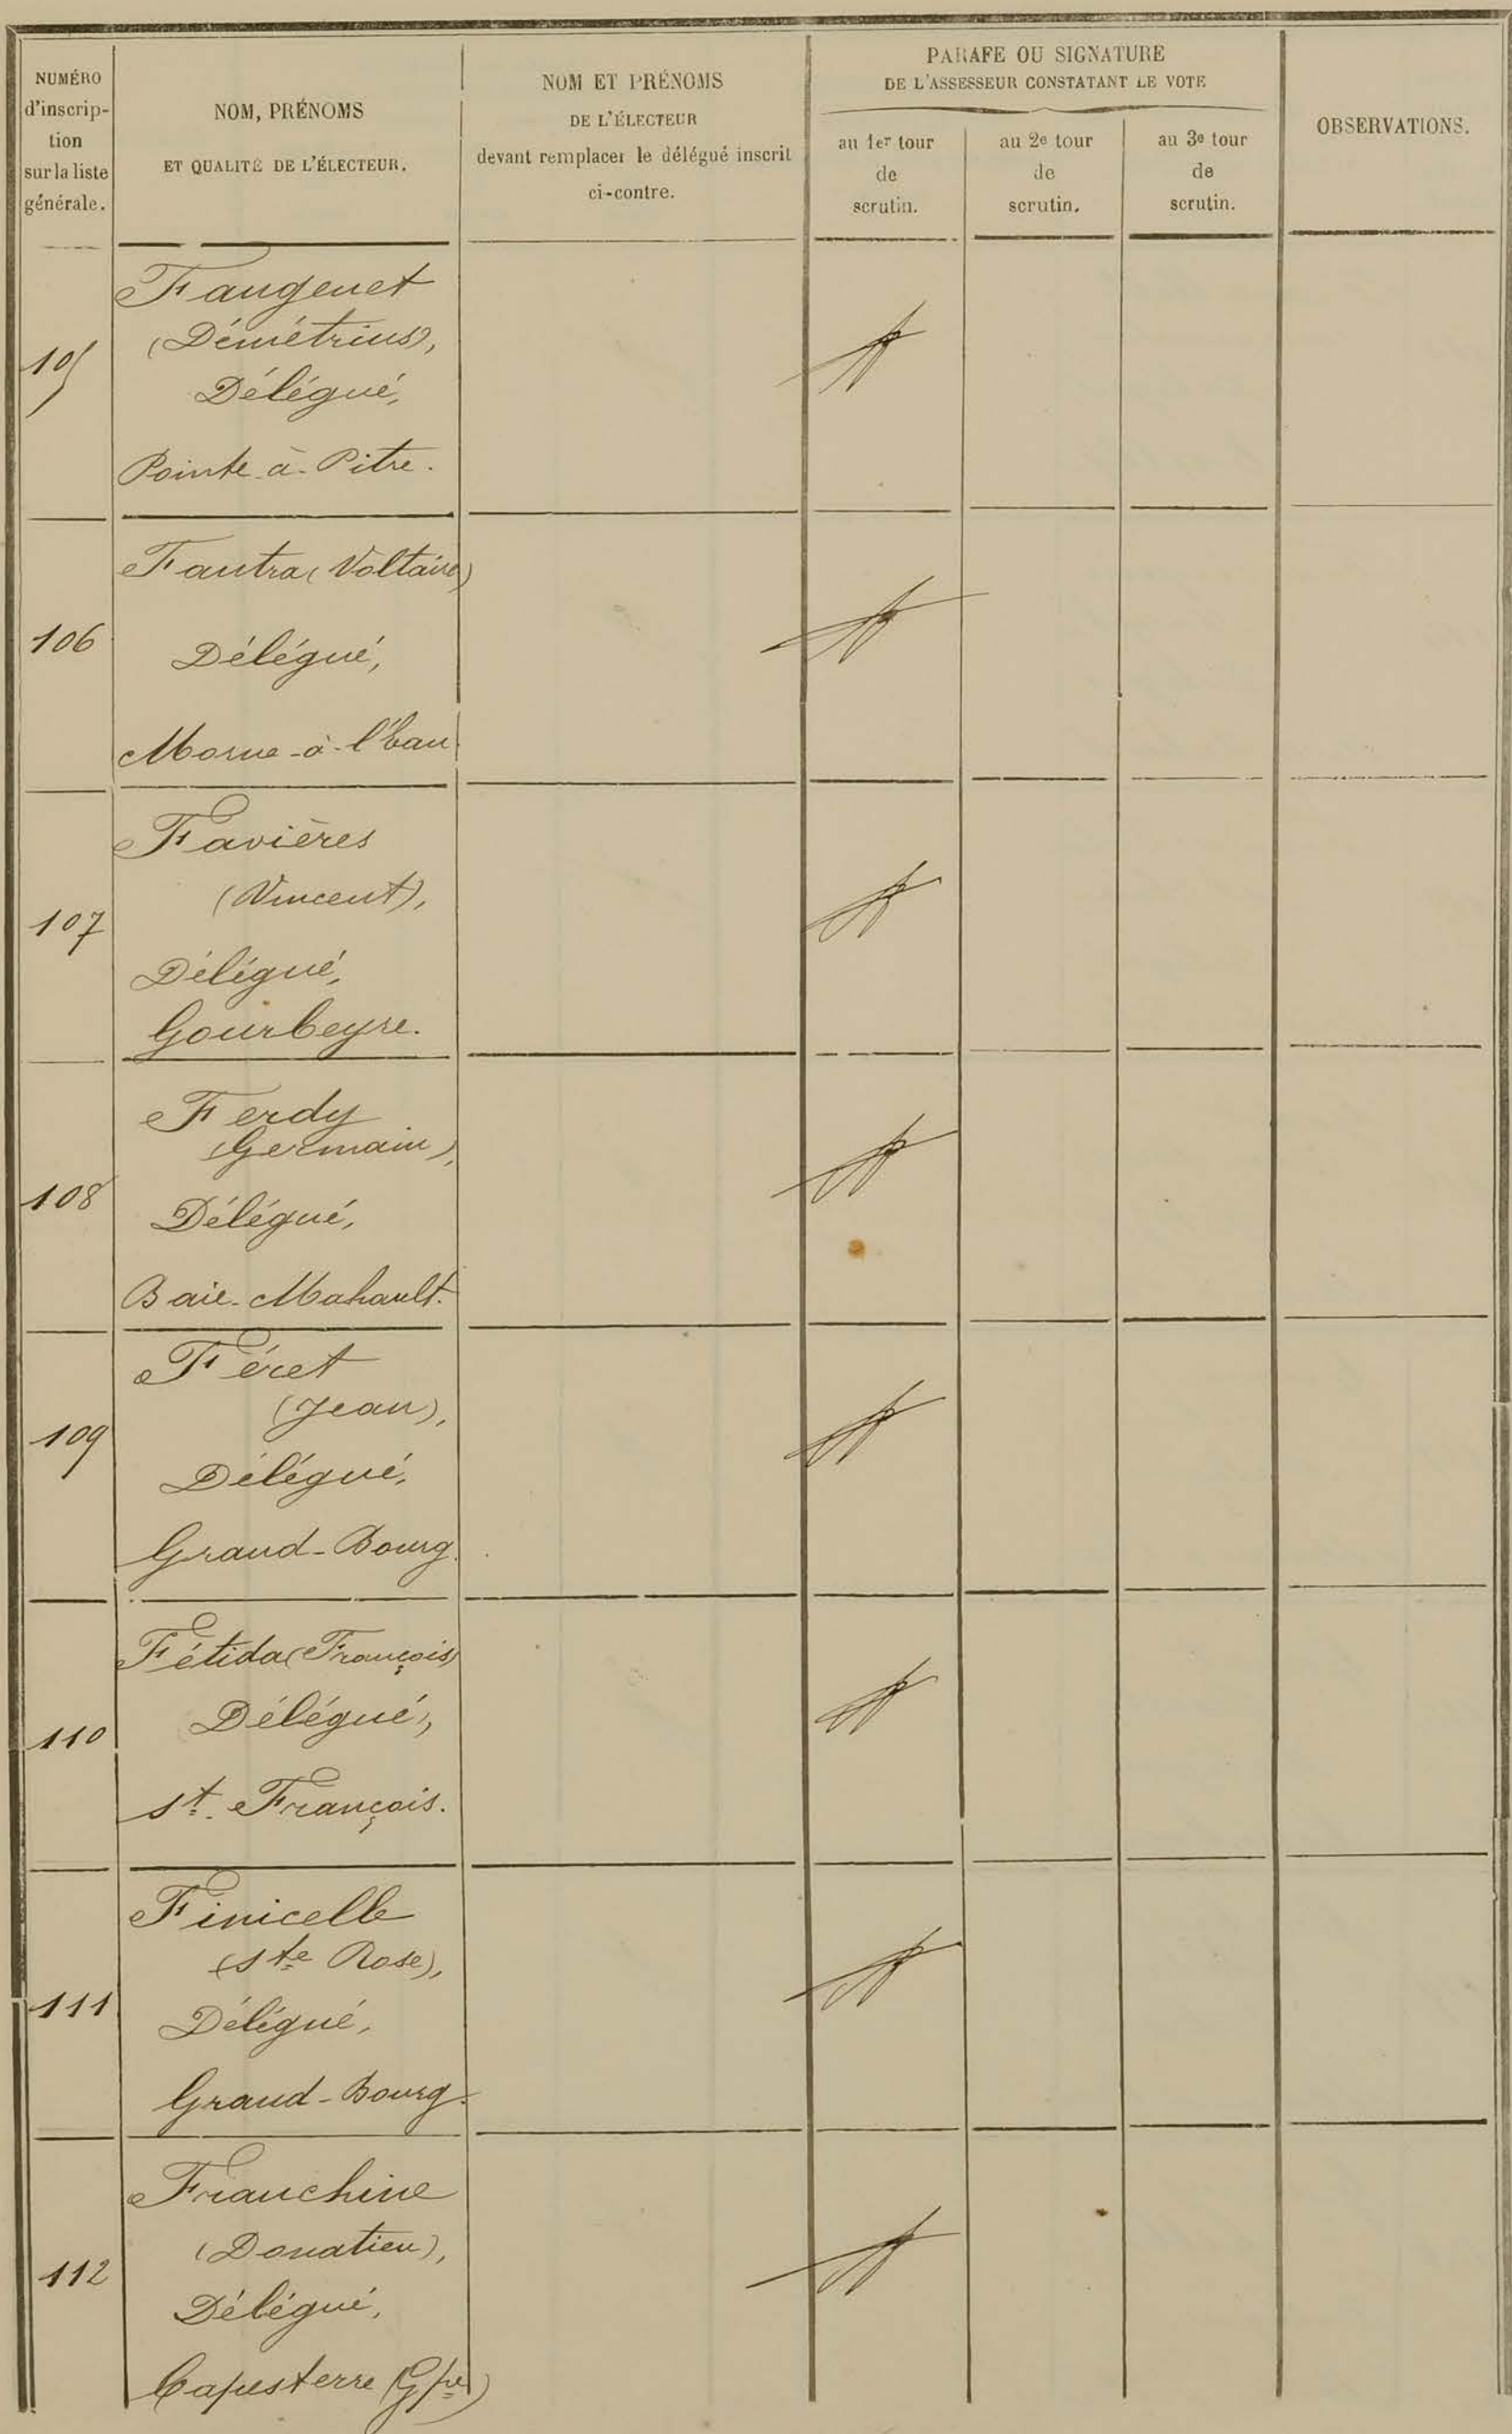 NUMÉRO
d'inscrip-
tion
sur la liste
générale.
NOM, PRÉNOMS
ET QUALITÉ DE L'ÉLECTEUR.
NOM ET PRÉNOMS
DE L'ÉLECTEUR
devant remplacer le délégué inscrit
ci-contre.
PARAFE OU SIGNATURE
DE L'ASSESSEUR CONSTATANT LE VOTE
au 1er tour
de
scrutin.
au 2e tour
de
scrutin.
au 3e tour
de
scrutin.
OBSERVATIONS.
105
Faugenet
(Démétrius),
Délégué,
Pointe-à-Pitre.
106
Fautra (Voltaire)
Délégué,
Morne-à-l'Eau.
107
Favières
(Vincent),
Délégué,
Gourbeyre.
108
Ferdy
(Germain),
Délégué,
Baie-Mahault.
109
Féret
(Jean),
Délégué,
Grand-Bourg.
110
Fétida (François)
Délégué,
St. François.
111
Finicelle
(Ste Rose),
Délégué,
Grand-Bourg.
112
Franchine
(Donatien),
Délégué,
Capesterre (Gpe)